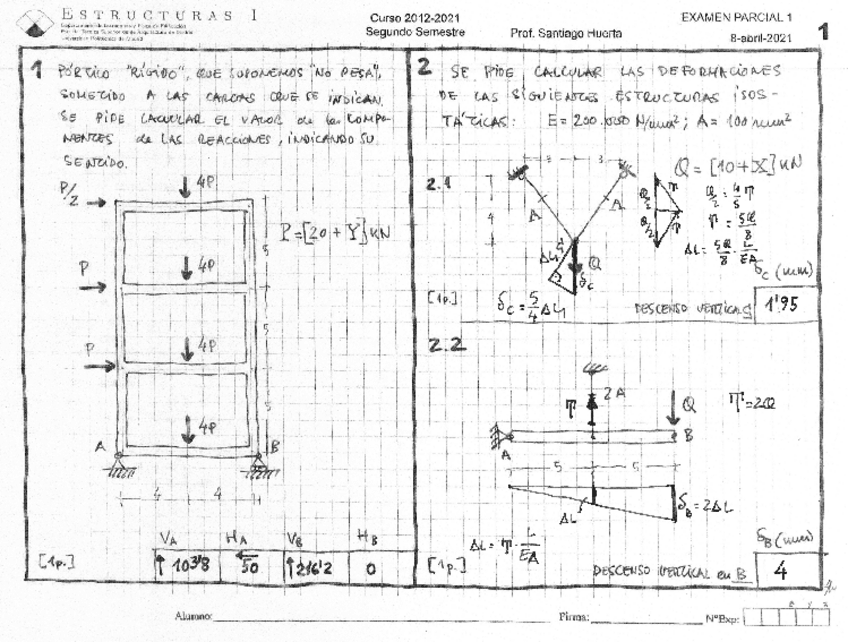 ESTRUCTURAS I
Curso 2012-2021
Segundo Semestre
Prof. Santiago Huerta
EXAMEN PARCIAL 1
8-abril-2021
1
1 PÓRTICO "RÍGIDO", QUE SUPONEMOS "NO PESA",
SOMETIDO A LAS CARGAS QUE SE INDICAN.
SE PIDE CALCULAR EL VALOR de las COMPO-
NENTES de LAS REACCIONES, INDICANDO SU
SENTIDO.
P/2
4P
P=[20+Y]KN
P
4P
5
P
4P
5
4P
5
A
B
4
4
VA HA VB HB
[1p.] ↑103'8 ← 50 ↑216'2 0
2 SE PIDE CALCULAR LAS DEFORMACIONES
DE LAS SIGUIENTES ESTRUCTURAS ISOS-
TÁTICAS: E=200.000 N/mm²; A=100 mm²
2.1
3 3
Q=[10+X]KN
4
A
A
Q/2
Q/2
T
T
Q/2 = 4/5 T
T = 5Q/8
ΔL = 5Q/8 · L/EA
ΔL
Q
δc
δc (mm)
[1p.]
δc = 5/4 ΔL
DESCENSO VERTICAL C
1'95
2.2
T
2A
Q
T=2Q
A
B
5
5
ΔL
δB=2ΔL
ΔL = T · L/EA
δB (mm)
[1p.]
DESCENSO VERTICAL en B
4
Alumno:
Firma:
NºExp: